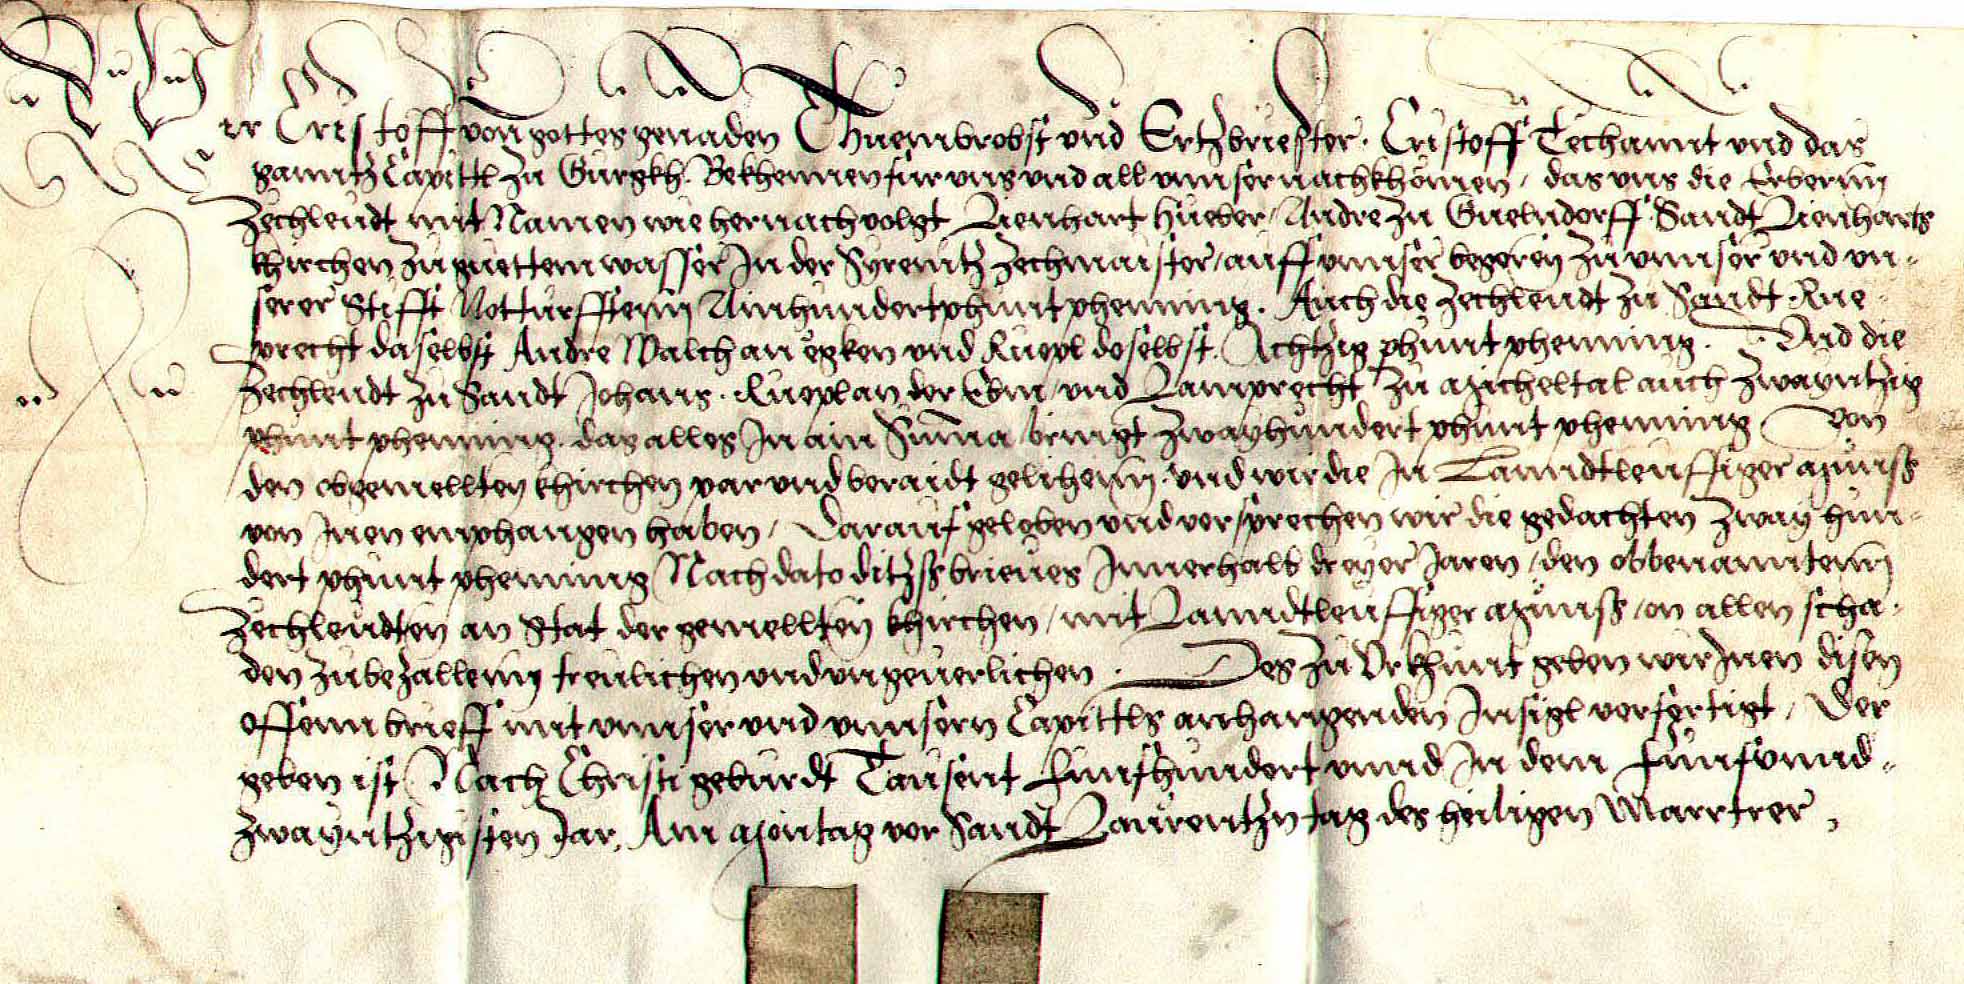 Wir Cristoff von gottes genaden Thuembrobst und Ertzbriester. Cristoff Techannt und das
ganntz Capittl zu Gurgkh. Bekhennen für uns und all unnser nachkhomen, das uns die Erbernn
Zechleudt mit Namen wie hernach volgt Lienhart Hueber, Andre zu Guelndorff Sandt Lienharts
khirchen zu guettem wasser In der Syrnitz Zechmaister, auff unnser begeren zu unnser und un-
serer Stifft Notturfftenn Ainhundert phunt phenning. Auch die Zechleudt zu Sandt Rue-
precht daselbst Andre Walch an egken und Ruepl doselbst. Achtzig phunt phenning. Und die
Zechleudt zu Sandt Johanns. Ruepl an der Ebm und Lamprecht zu Micheltal auch zwayntzig
phunt phenning. das alles In ain Suma bringt zwayhundert phunt phenning von
den obgemellten khirchen par und beraidt gelihenn. und wir die In Lanndtleuffiger Munss
von Inen emphangen haben, Darauf geloben und versprechen wir die gedachten zway hun-
dert phunt phenning Nach dato ditzs brieves Innerhalb dreyer Jaren, den obbenanntenn
Zechleudten an stat der gemellten khirchen, mit Lanndtleuffiger Munss, on allen scha-
den zubezallenn treulichen und ungeverlichen. Des zu Urkhunt geben wir Inen disen
offenn brieff mit unnser und unnsern Capittls anhangenden Insigl verfertigt, Der
geben ist Nach Christi geburdt Tausent Funfhundert unnd In dem Funfunnd-
zwayntzigisten Jar, Am Montag vor Sandt Laurentzn tag des heiligen Martrer,